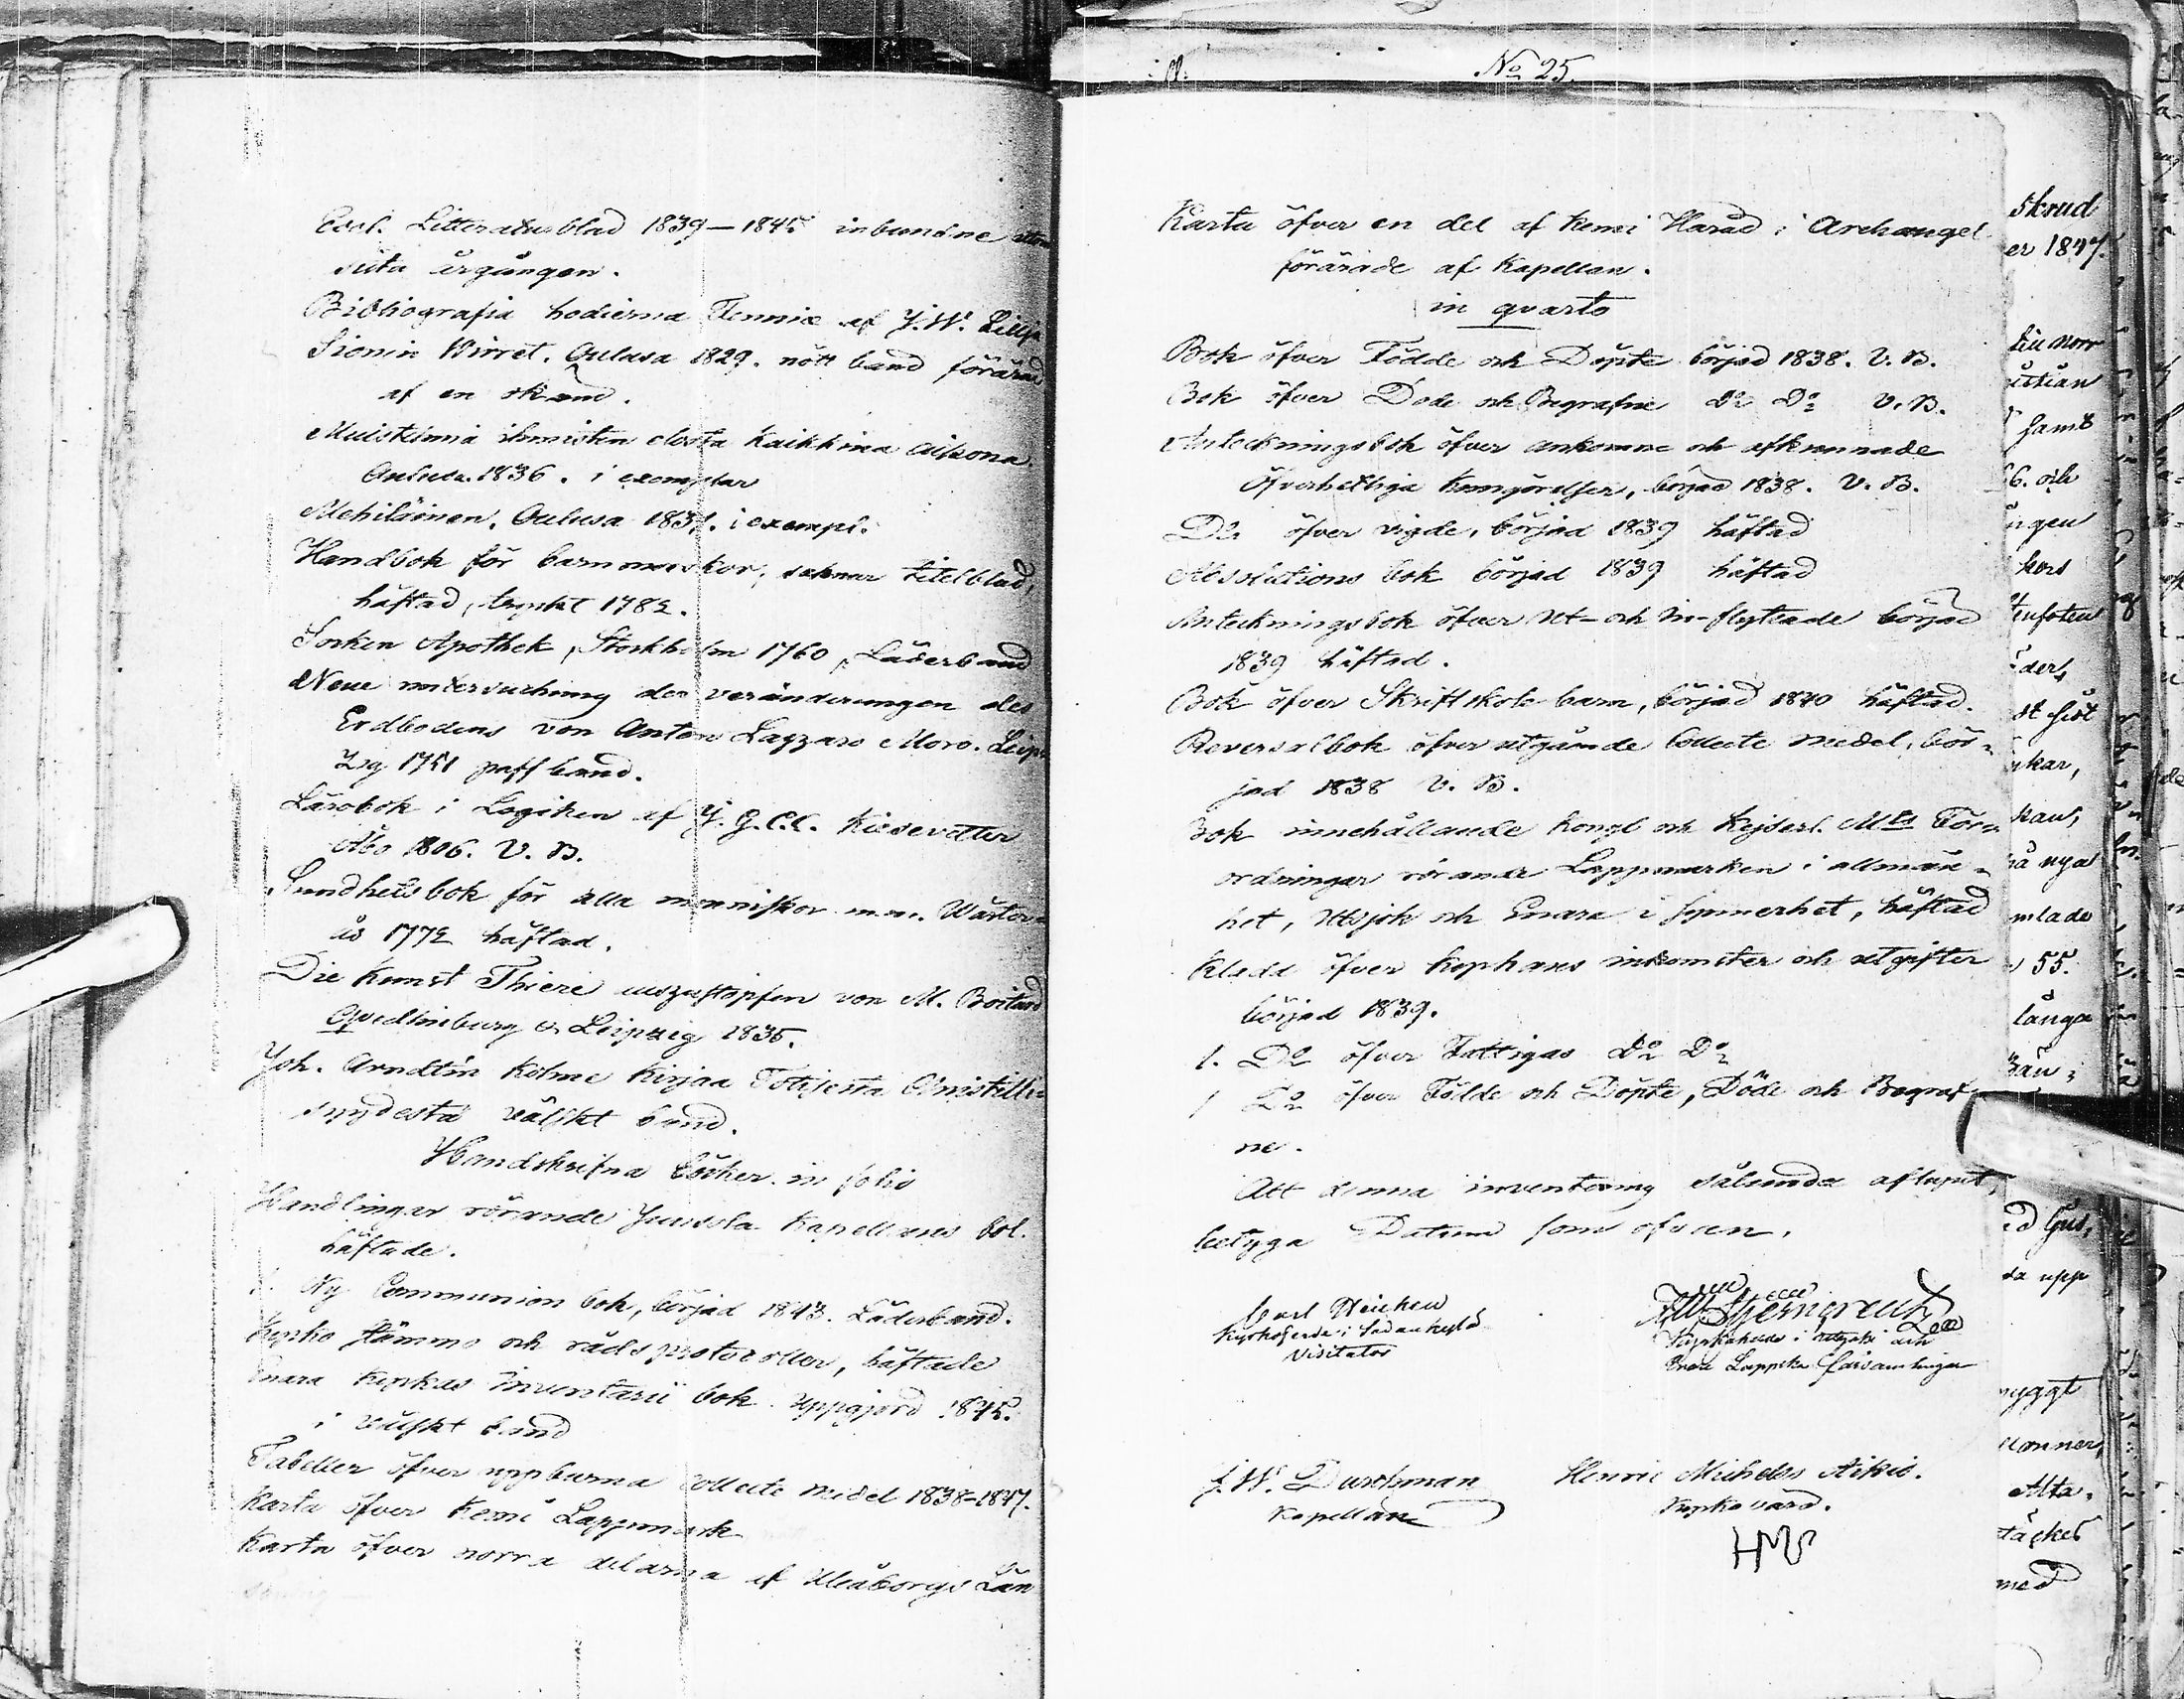 Eccl. Litteraturblad 1839–1845 inbundne utom
sista årgången.
Bibliografia hodierna Fenniæ af J. W. Lillja
Sionin Wirret. Oulusa 1829. nött band förärad
af en okänd.
Muistelmia ihmisten elosta kaikkina aikona
Oulusa 1836. i exemplar
Mehiläinen. Oulusa 1837. i exempl.
Handbok för barnmorskor, saknar titelblad,
häftad, tryckt 1782.
Socken Apothek, Stockholm 1760, Läderband
Neue untersuchung der veränderungen des
Erdbodens von Anton Lazzaro Moro. Leip-
zig 1751 paffband.
Lärobok i Logiken af J. G. C. C. Kiesevetter
Åbo 1806. V. B.
Sundhetsbok för alla menniskor m.m. Wäster-
ås 1772 häftad.
Die Kunst Thiere auszustopfen von M. Boitard
Quedlinburg & Leipzig 1835.
Joh. Arndtin Kolme Kirjaa Totisesta Christilli-
syydestä välskt band.
Handskrifna böcker in folio
Handlingar rörande Kapellanens bol.
häftade.
1. Ny Communion bok, börjad 1843. Läderband.
Kyrko stämmo och råds protocoller, häftade
Enara Kyrkas Inventarii bok uppgjord 1845.
i välskt band
Tabeller öfver uppburna Collecte medel 1838–1847.
Karta öfver Kemi Lappmark
Karta öfver norra delarna af Uleåborgs Län
No 25.
Karta öfver en del af Kemi Härad i Archangel
förärade af Kapellan.
in qvarto
Bok öfver Födde och Döpte börjad 1838. V. B.
Bok öfver Döde och Begrafne Do Do V. B.
Anteckningsbok öfver ankomne och afkunnade
öfverhetliga Kungörelser, börjad 1838. V. B.
Do öfver vigde, börjad 1839 häftad
Absolutions bok börjad 1839 häftad
Anteckningsbok öfver Ut- och In-flyttade börjad
1839 häftad.
Bok öfver Skriftskole barn, börjad 1840 häftad.
Reversalbok öfver utgående Collecte medel, bör-
jad 1838 V. B.
Bok innehållande Kongl och Kejserl. Mts För-
ordningar rörande Lappmarken i allmän-
het, Utsjok och Enara i synnerhet, häftad
Kladd öfver Kyrkans inkomster och utgifter
börjad 1839.
1. Do öfver Fattigas Do Do
1 Do öfver Födde och Döpte, Döde och Begraf-
ne.
Att denna inventering sålunda aflupit,
betyga Datum som ofvan.
Carl Heickell
Kyrkoherde i Sodankylä
Visitator
Stjerncreutz
Kyrkoherde i Utsjoki och
Enare Lappska församlingar
J. W. Durchman
Kapellan
Henric Michelss Aikio.
Kyrkovärd.
HMS
skrud
er 1847.
samt
och
ders
nya
55.
långa
ljus,
da upp
yggt
Alta-
täcket
med